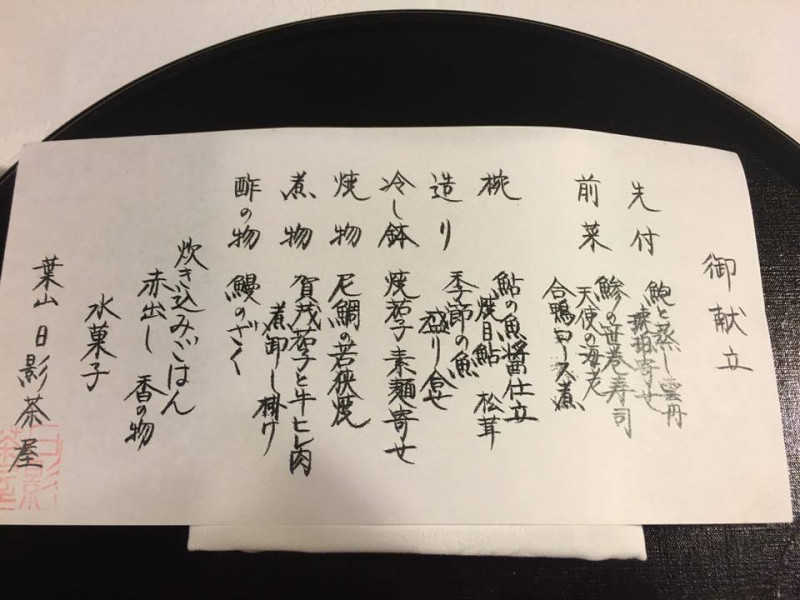 御献立
先付 鮑と蒸し雲丹
琥珀寄せ
前菜 鯵の笹巻寿司
天使の海老
合鴨ロース煮
椀 鮎の魚醤仕立
焼目鮎 松茸
造り 季節の魚
盛り合せ
冷し鉢 焼茄子素麺寄せ
焼物 尼鯛の若狭焼
煮物 賀茂茄子と牛ヒレ肉
煮卸し掛け
酢の物 鰻のざく
炊き込みごはん
赤出し 香の物
水菓子
葉山 日影茶屋
日影
茶屋